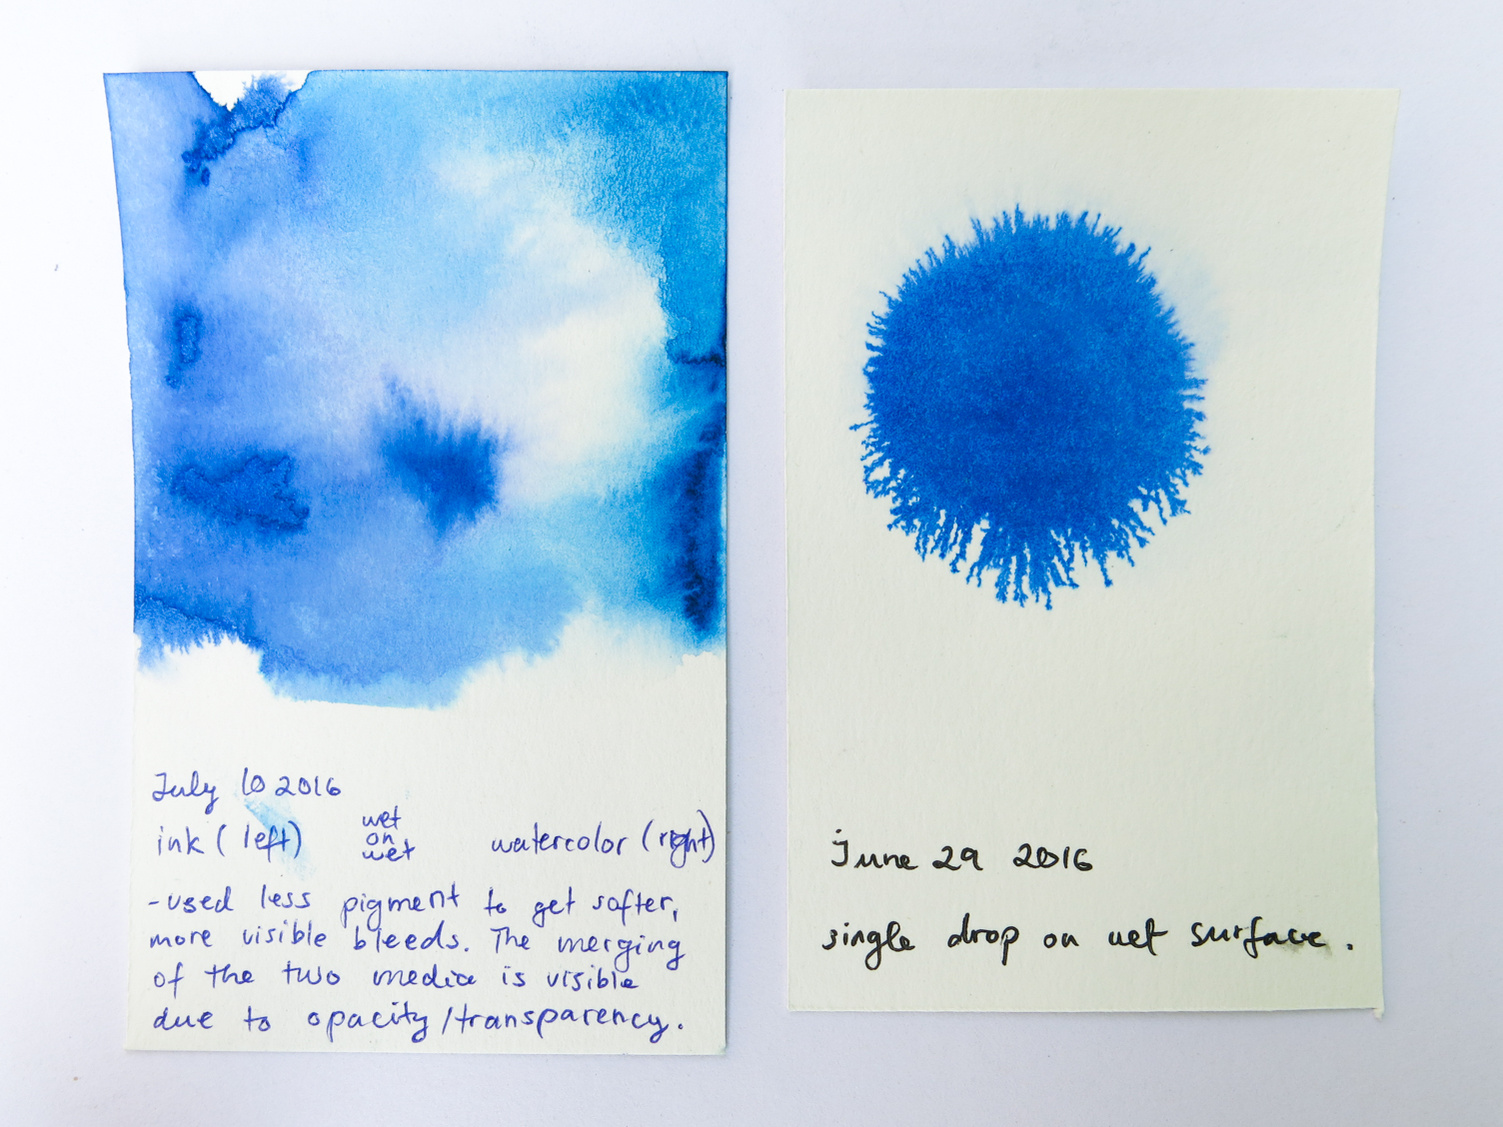 July 10 2016
ink (left) wet on wet watercolor (right)
- used less pigment to get softer,
more visible bleeds. The merging
of the two media is visible
due to opacity/transparency.
June 29 2016
single drop on wet surface.